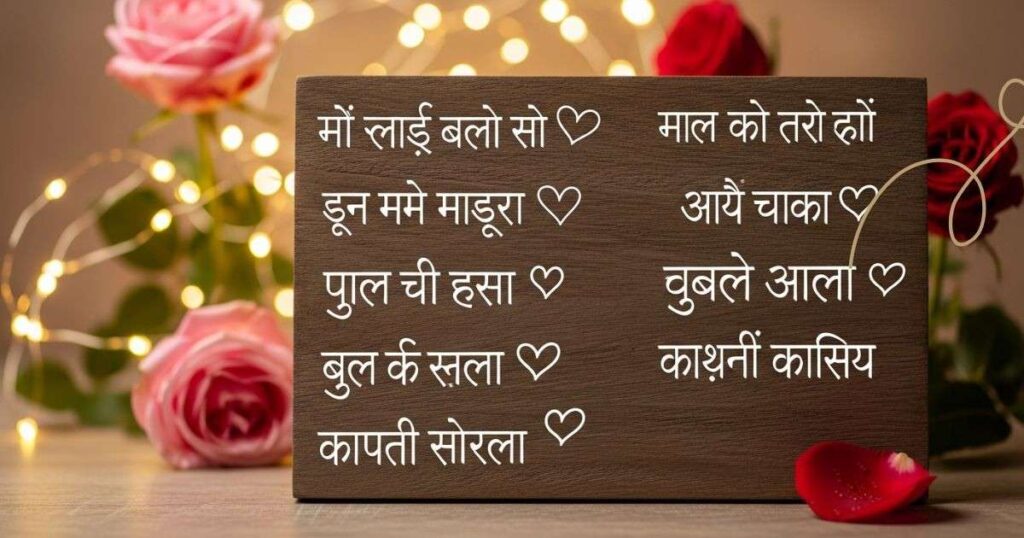 मों लाई बलो सो
डून ममे माडूरा
पुाल ची हसा
बुल र्क स़ला
कापती सोरला
माल को तरो ढाों
आयैं चाका
वुबले आला
काथ़नीं कासिय